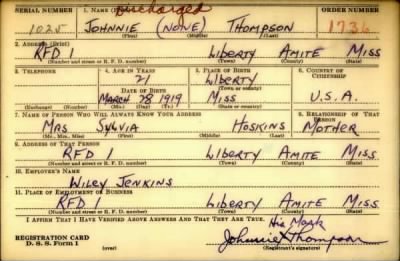 SERIAL NUMBER 1. NAME (Print) Discharged ORDER NUMBER
1025 JOHNNIE (NONE) THOMPSON 1736
(First) (Middle) (Last)
2. ADDRESS (Print)
RFD 1 LIBERTY AMITE MISS
(Number and street or R. F. D. number) (Town) (County) (State)
3. TELEPHONE 4. AGE IN YEARS 5. PLACE OF BIRTH 6. COUNTRY OF CITIZENSHIP
21 LIBERTY
DATE OF BIRTH (Town or county)
MARCH 28 1919 MISS U.S.A.
(Exchange) (Number) (Mo.) (Day) (Yr.) (State or country)
7. NAME OF PERSON WHO WILL ALWAYS KNOW YOUR ADDRESS 8. RELATIONSHIP OF THAT PERSON
MRS SYLVIA HOSKINS MOTHER
(Mr., Mrs., Miss) (First) (Middle) (Last)
9. ADDRESS OF THAT PERSON
RFD LIBERTY AMITE MISS
(Number and street or R. F. D. number) (Town) (County) (State)
10. EMPLOYER'S NAME
WILEY JENKINS
11. PLACE OF EMPLOYMENT OR BUSINESS
RFD 1 LIBERTY AMITE MISS
(Number and street or R. F. D. number) (Town) (County) (State)
I AFFIRM THAT I HAVE VERIFIED ABOVE ANSWERS AND THAT THEY ARE TRUE. His Mark
REGISTRATION CARD Johnnie X Thompson
D. S. S. Form 1 (over) (Registrant's signature)